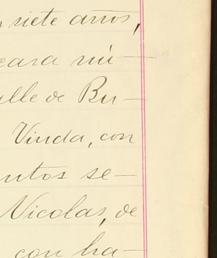 siete años,
cara nú-
alle de Bu-
Viuda, con
ntos se-
Nicolas, de
con ha-